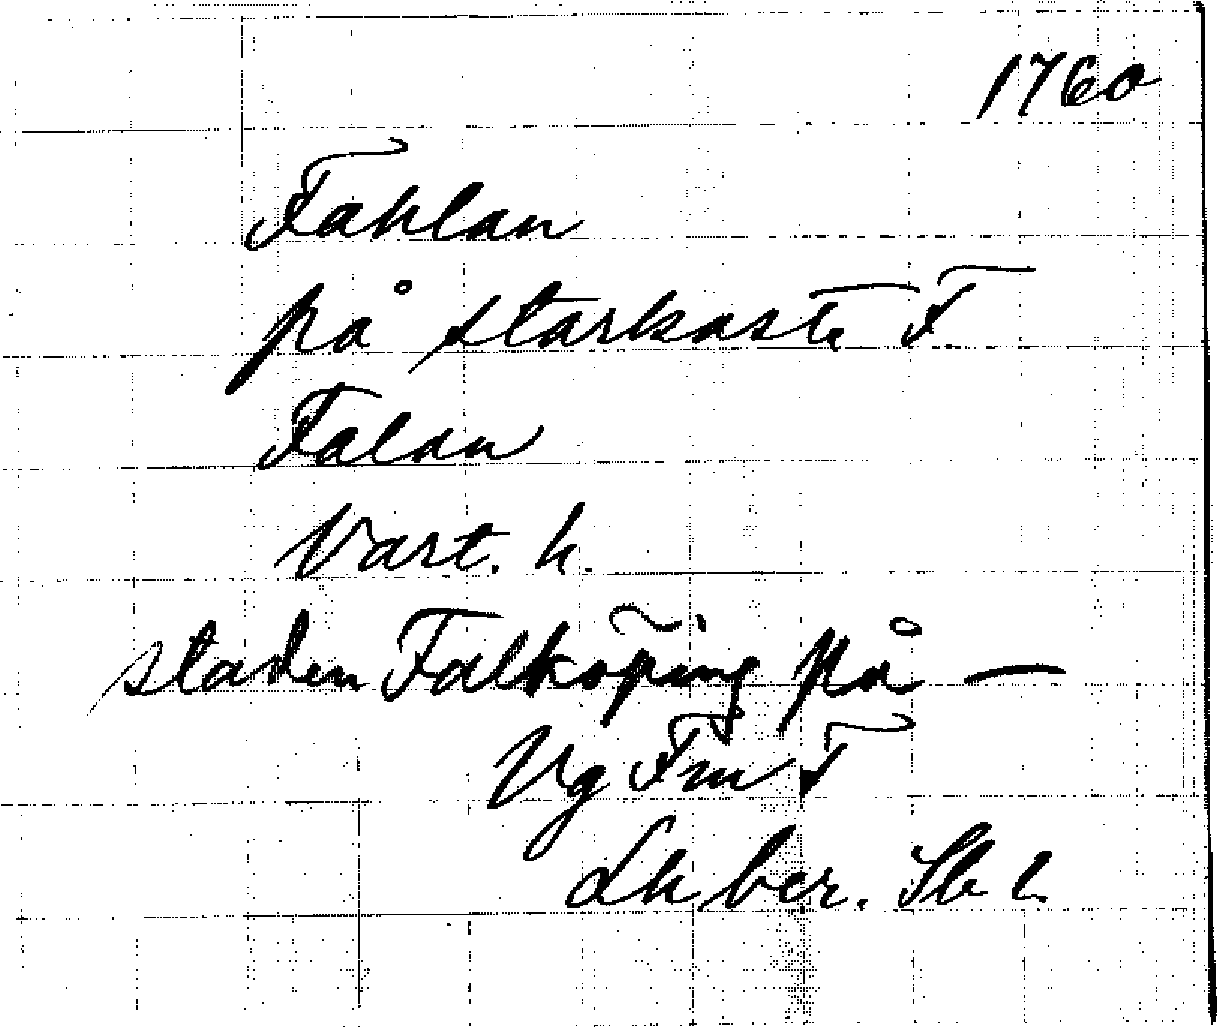 1760
Fahlan
på starkaste F
Falan
Vart. h.
staden Falköping på —
Vg Fm F
Lh ber. Sb 6.